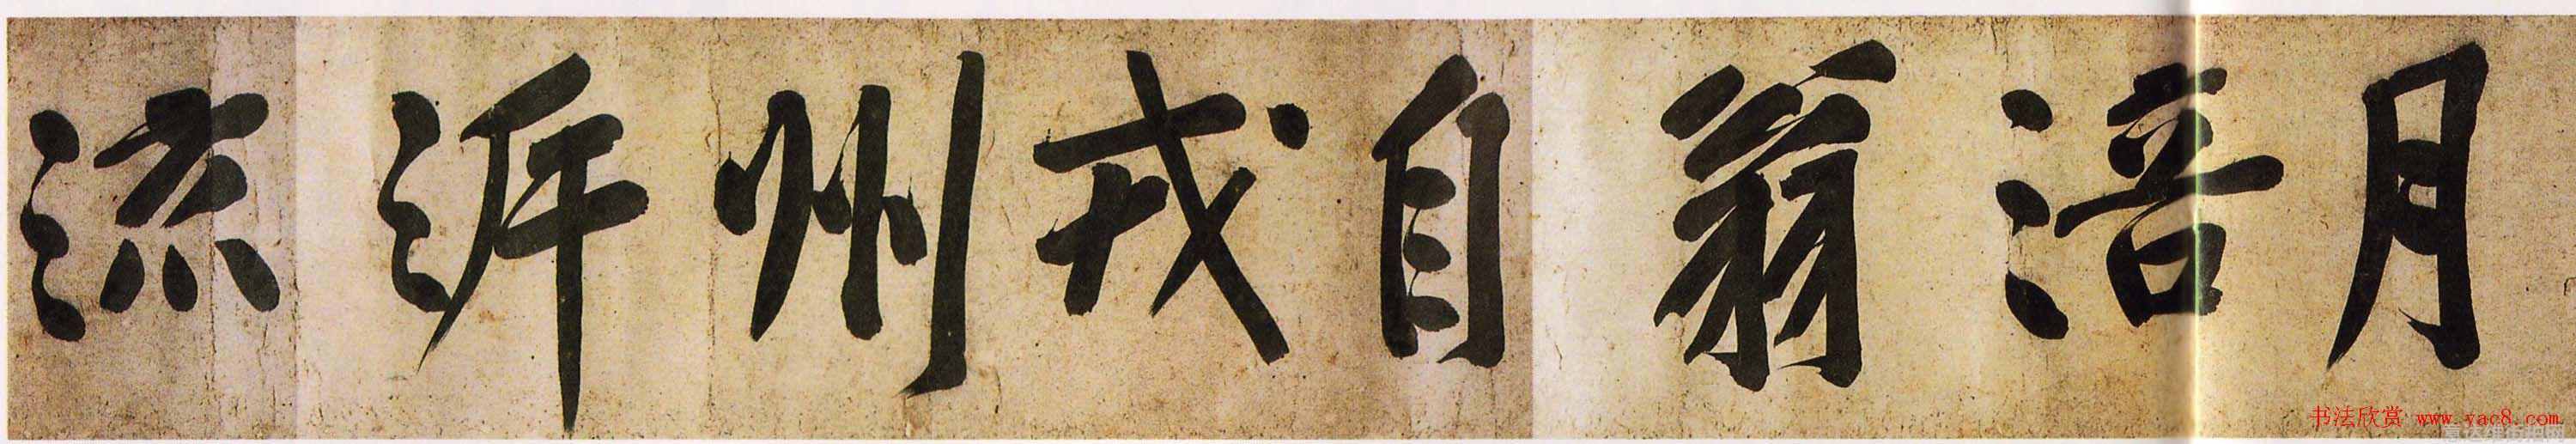 月涪翁自戎州泝流
书法欣赏 www.yac8.com